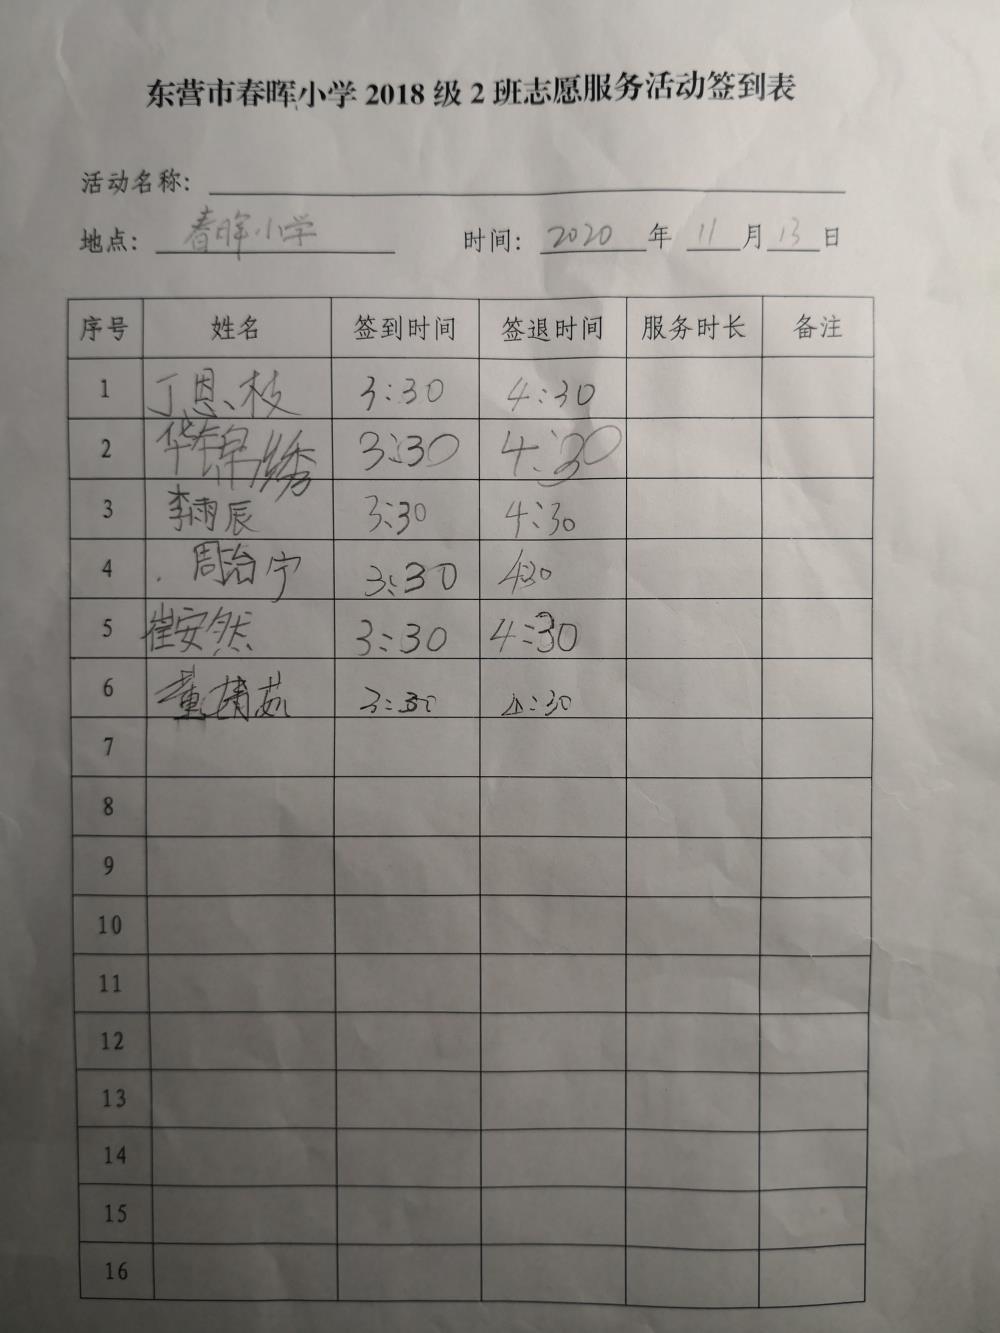 东营市春晖小学2018级2班志愿服务活动签到表
活动名称:
地点: 春晖小学 时间: 2020年 11月13日
序号 姓名 签到时间 签退时间 服务时长 备注
1 丁恩枝 3:30 4:30
2 华锦绣 3:30 4:30
3 李雨辰 3:30 4:30
4 周治宁 3:30 4:30
5 崔安然 3:30 4:30
6 董婧茹 3:30 4:30
7
8
9
10
11
12
13
14
15
16